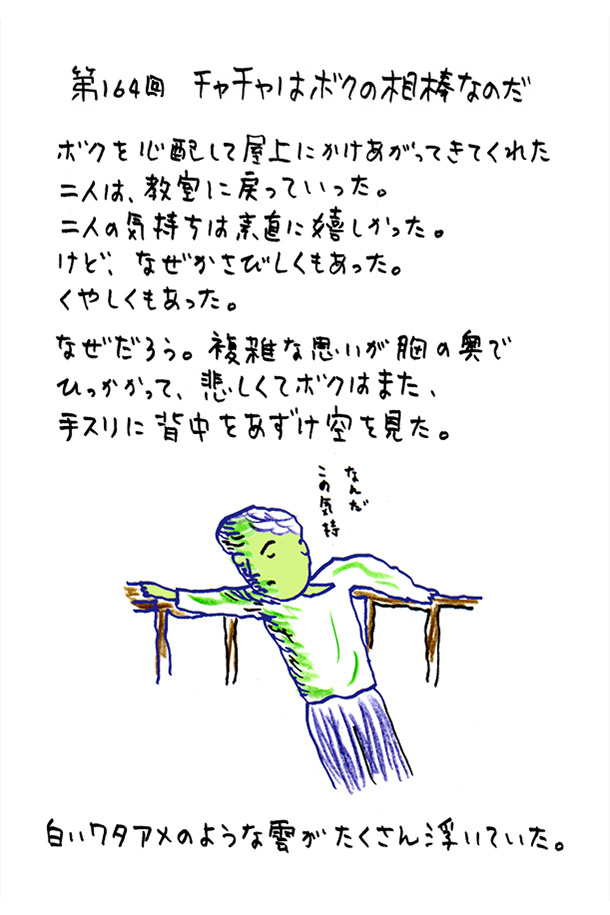 第164回 チャチャはボクの相棒なのだ
ボクを心配して屋上にかけあがってきてくれた
二人は、教室に戻っていった。
二人の気持ちは素直に嬉しかった。
けど、なぜかさびしくもあった。
くやしくもあった。
なぜだろう。複雑な思いが胸の奥で
ひっかかって、悲しくてボクはまた、
手スリに背中をあずけ空を見た。
なんだ
この気持
白いワタアメのような雲がたくさん浮いていた。